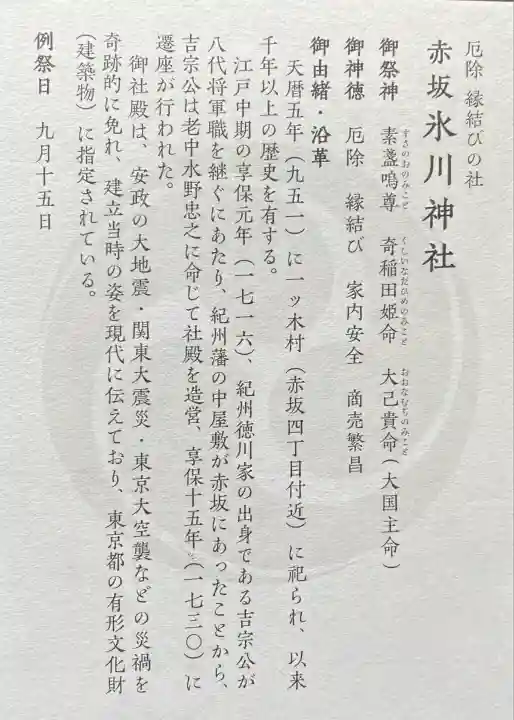 厄除 縁結びの社
赤坂氷川神社
御祭神 素盞嗚尊 奇稲田姫命 大己貴命(大国主命)
すさのおのみこと くしいなだひめのみこと おおなむぢのみこと
御神徳 厄除 縁結び 家内安全 商売繁昌
御由緒・沿革
天暦五年(九五一)に一ッ木村(赤坂四丁目付近)に祀られ、以来
千年以上の歴史を有する。
江戸中期の享保元年(一七一六)、紀州徳川家の出身である吉宗公が
八代将軍職を継ぐにあたり、紀州藩の中屋敷が赤坂にあったことから、
吉宗公は老中水野忠之に命じて社殿を造営、享保十五年(一七三〇)に
遷座が行われた。
御社殿は、安政の大地震・関東大震災・東京大空襲などの災禍を
奇跡的に免れ、建立当時の姿を現代に伝えており、東京都の有形文化財
(建築物)に指定されている。
例祭日 九月十五日